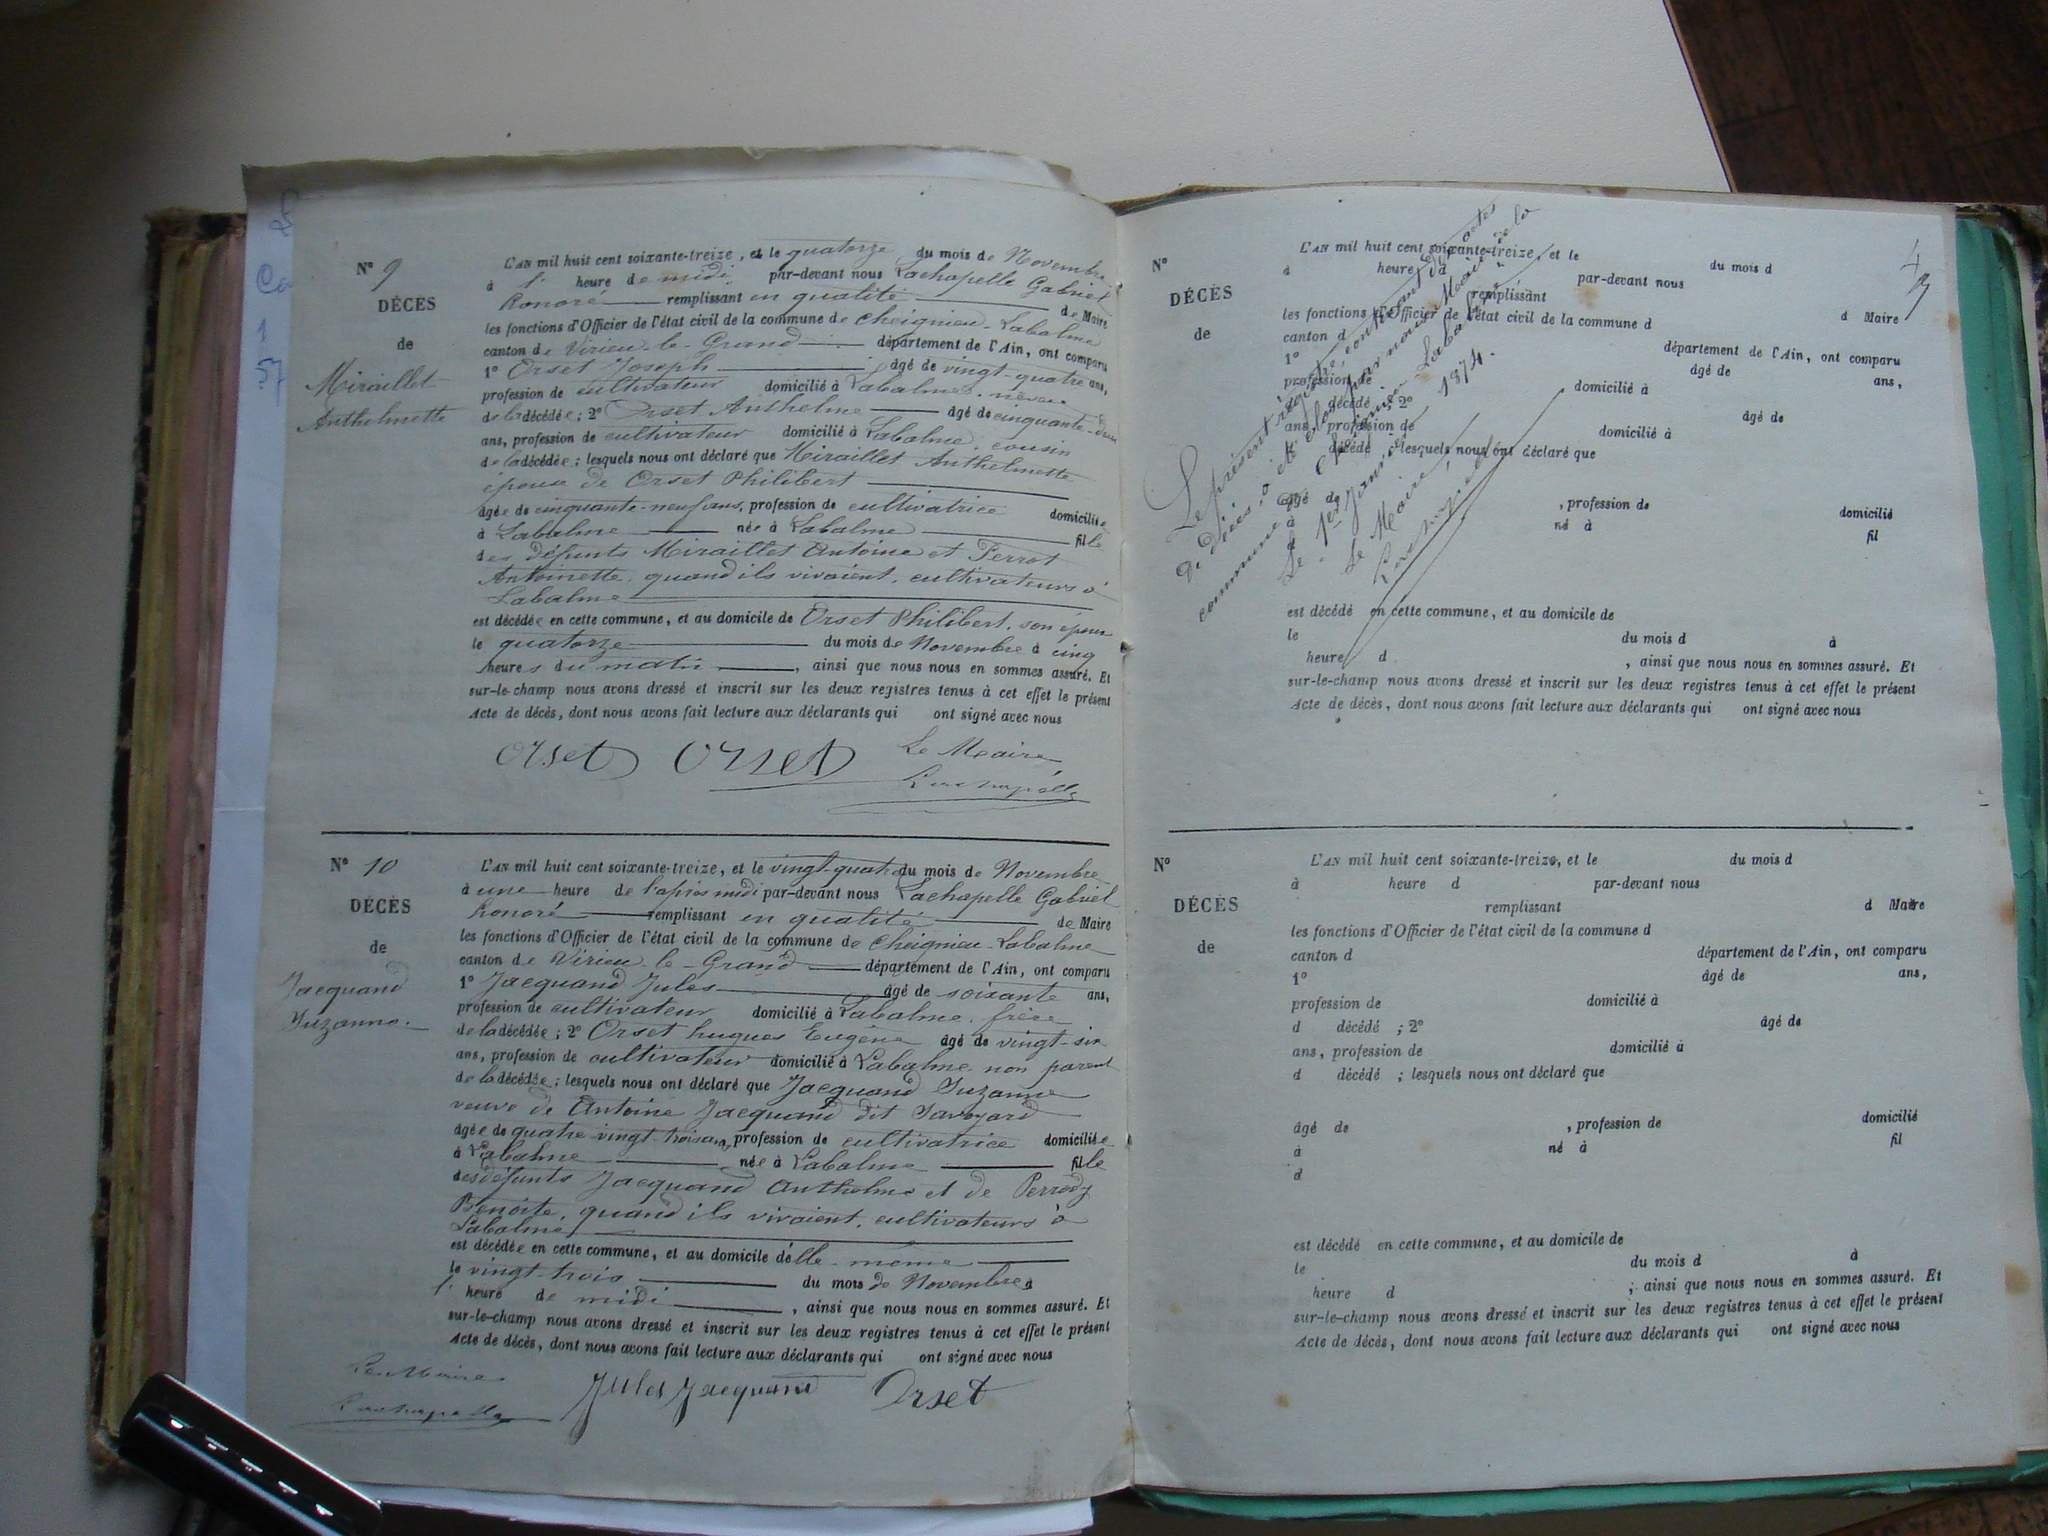 N° 9
DÉCÈS
de
Miraillet
Anthelmette
L'AN mil huit cent soixante-treize, et le quatorze du mois de Novembre
à 1' heure de midi par-devant nous Lachapelle Gabriel
honoré remplissant en qualité de Maire
les fonctions d'Officier de l'état civil de la commune de Cheignieu-Labalme
canton de Virieu-le-Grand département de l'Ain, ont comparu
1° Orset Joseph âgé de vingt-quatre ans,
profession de cultivateur domicilié à Labalme, neveu
de la décédée; 2° Orset Anthelme âgé de cinquante-deux
ans, profession de cultivateur domicilié à Labalme, cousin
de la décédée; lesquels nous ont déclaré que Miraillet Anthelmette
épouse de Orset Philibert
âgée de cinquante-neuf ans, profession de cultivatrice domiciliée
à Labalme née à Labalme fille
des défunts Miraillet Antoine et Perrot
Antoinette, quand ils vivaient, cultivateurs à
Labalme
est décédée en cette commune, et au domicile de Orset Philibert, son époux
le quatorze du mois de Novembre à cinq
heures du matin, ainsi que nous nous en sommes assuré. Et
sur-le-champ nous avons dressé et inscrit sur les deux registres tenus à cet effet le présent
Acte de décès, dont nous avons fait lecture aux déclarants qui ont signé avec nous
Orset Orset Le Maire
Lachapelle
N° 10
DÉCÈS
de
Jacquand
Suzanne.
L'AN mil huit cent soixante-treize, et le vingt-quatre du mois de Novembre
à une heure de l'après midi par-devant nous Lachapelle Gabriel
honoré remplissant en qualité de Maire
les fonctions d'Officier de l'état civil de la commune de Cheignieu-Labalme
canton de Virieu-le-Grand département de l'Ain, ont comparu
1° Jacquand Jules âgé de soixante ans,
profession de cultivateur domicilié à Labalme, frère
de la décédée; 2° Orset hugues Eugène âgé de vingt-six
ans, profession de cultivateur domicilié à Labalme non parent
de la décédée; lesquels nous ont déclaré que Jacquand Suzanne
veuve de Antoine Jacquand dit Savoyard
âgée de quatre vingt-trois ans, profession de cultivatrice domiciliée
à Labalme née à Labalme fille
des défunts Jacquand Anthelme et de Perrody
Benoite, quand ils vivaient, cultivateurs à
Labalme
est décédée en cette commune, et au domicile d'elle-même
le vingt-trois du mois de Novembre à
1' heure de midi, ainsi que nous nous en sommes assuré. Et
sur-le-champ nous avons dressé et inscrit sur les deux registres tenus à cet effet le présent
Acte de décès, dont nous avons fait lecture aux déclarants qui ont signé avec nous
Le Maire
Lachapelle Jules Jacquand Orset
N°
DÉCÈS
de
L'AN mil huit cent soixante-treize, et le du mois d
à heure d par-devant nous
remplissant d Maire
les fonctions d'Officier de l'état civil de la commune d
canton d département de l'Ain, ont comparu
1° âgé de ans,
profession de domicilié à
d décédé ; 2° âgé de
ans, profession de domicilié à
d décédé ; lesquels nous ont déclaré que
âgé de , profession de domicilié
à né à fil
d
est décédé en cette commune, et au domicile de
le du mois d à
heure d , ainsi que nous nous en sommes assuré. Et
sur-le-champ nous avons dressé et inscrit sur les deux registres tenus à cet effet le présent
Acte de décès, dont nous avons fait lecture aux déclarants qui ont signé avec nous
Le présent registre, contenant actes
de décès, a été clos par nous Maire de la
commune de Cheignieu-Labalme
Le 1er Janvier 1874.
Le Maire
Lachapelle
N°
DÉCÈS
de
L'AN mil huit cent soixante-treize, et le du mois d
à heure d par-devant nous
remplissant d Maire
les fonctions d'Officier de l'état civil de la commune d
canton d département de l'Ain, ont comparu
1° âgé de ans,
profession de domicilié à
d décédé ; 2° âgé de
ans, profession de domicilié à
d décédé ; lesquels nous ont déclaré que
âgé de , profession de domicilié
à né à fil
d
est décédé en cette commune, et au domicile de
le du mois d à
heure d ; ainsi que nous nous en sommes assuré. Et
sur-le-champ nous avons dressé et inscrit sur les deux registres tenus à cet effet le présent
Acte de décès, dont nous avons fait lecture aux déclarants qui ont signé avec nous